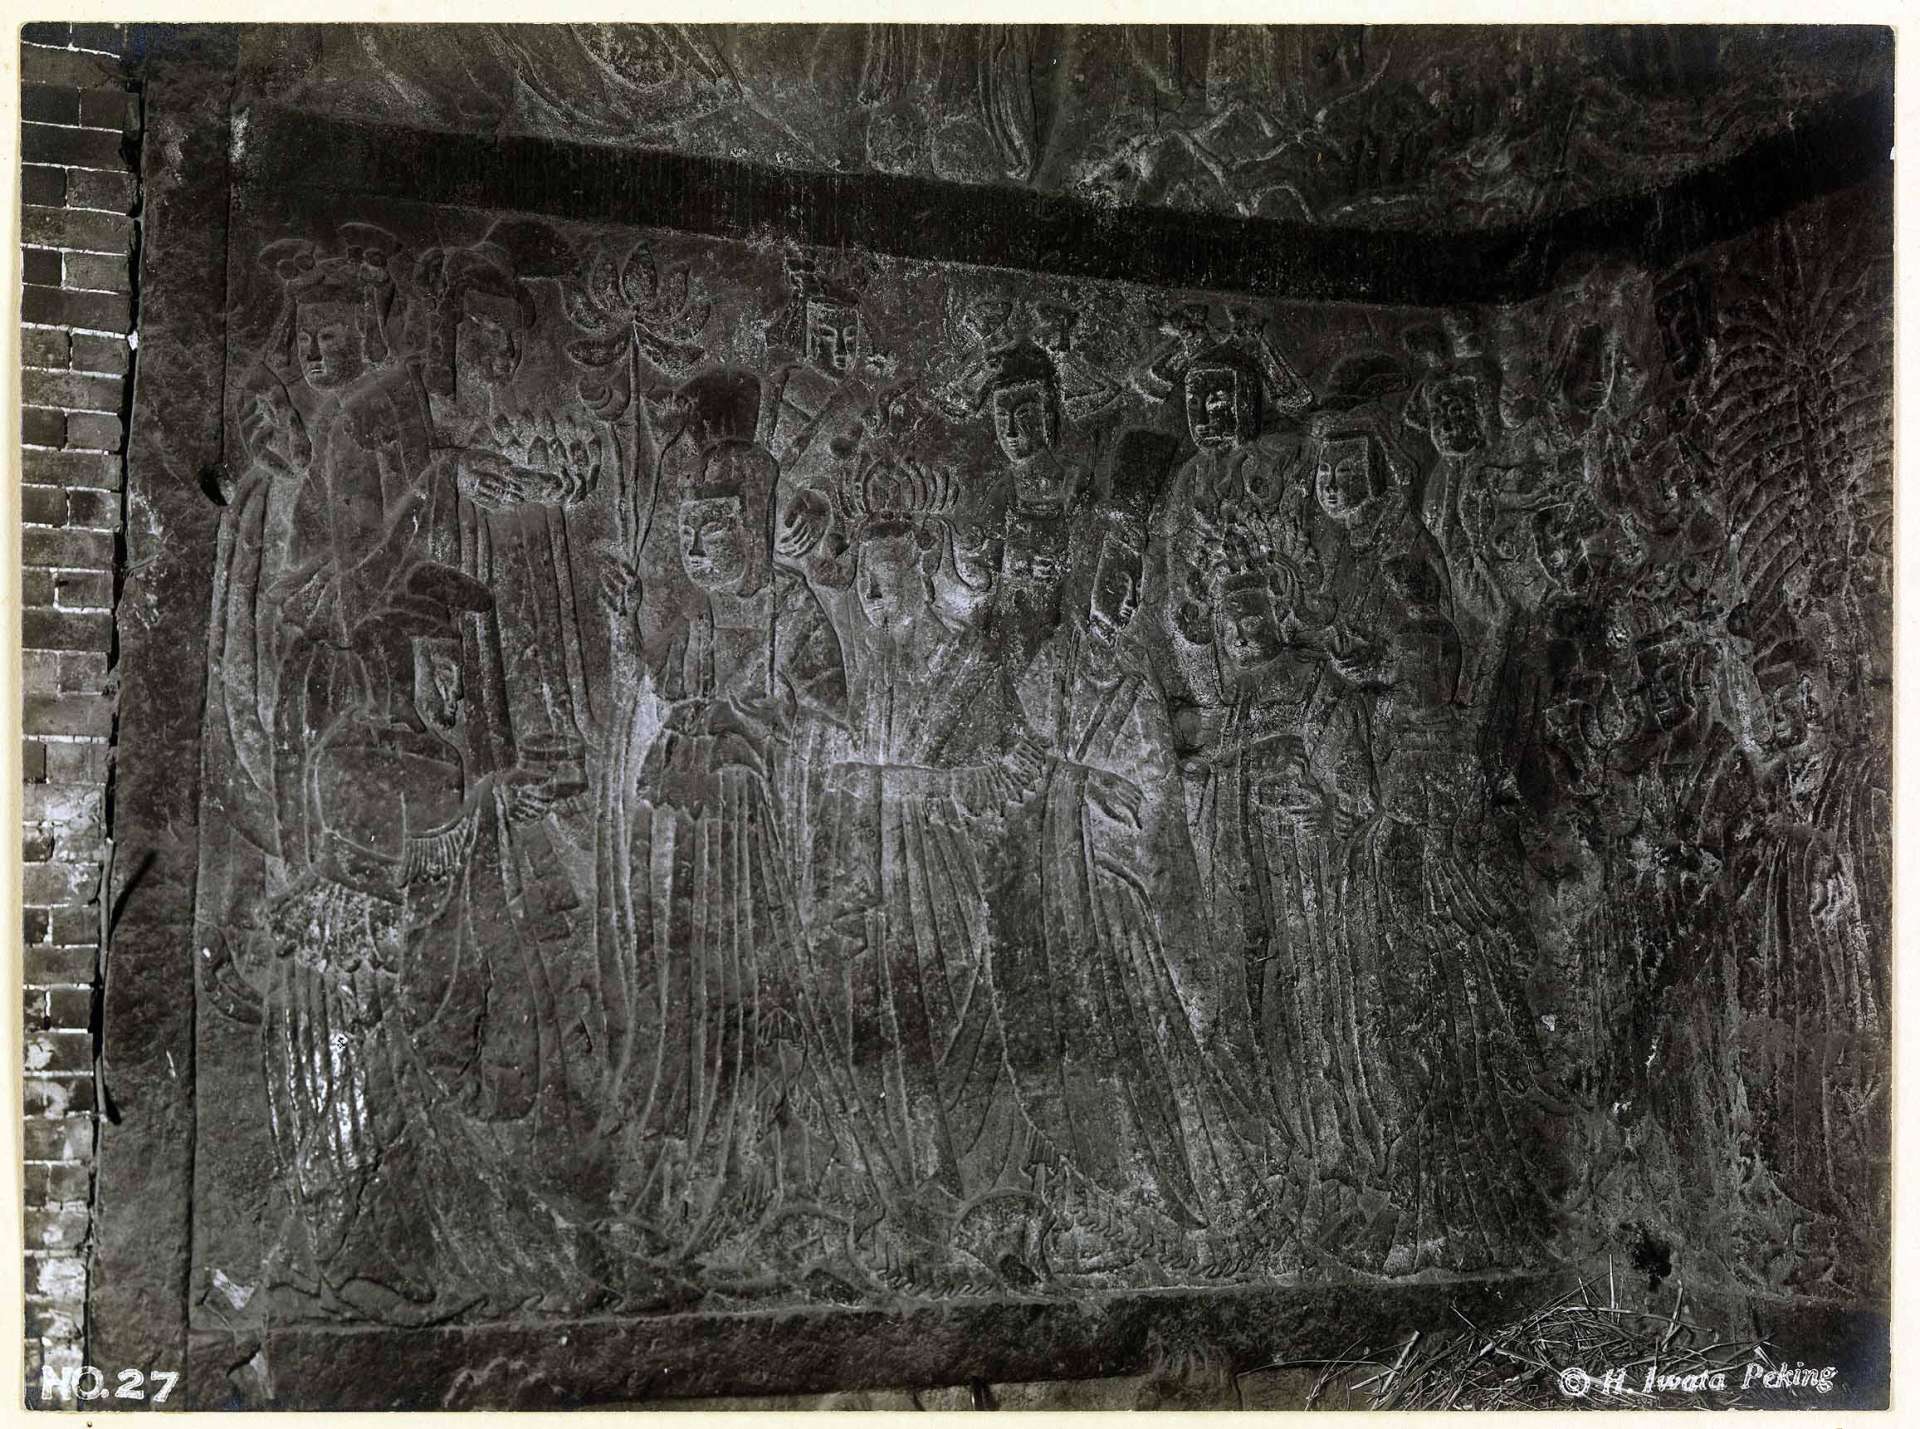 NO.27
© H. Iwata Peking